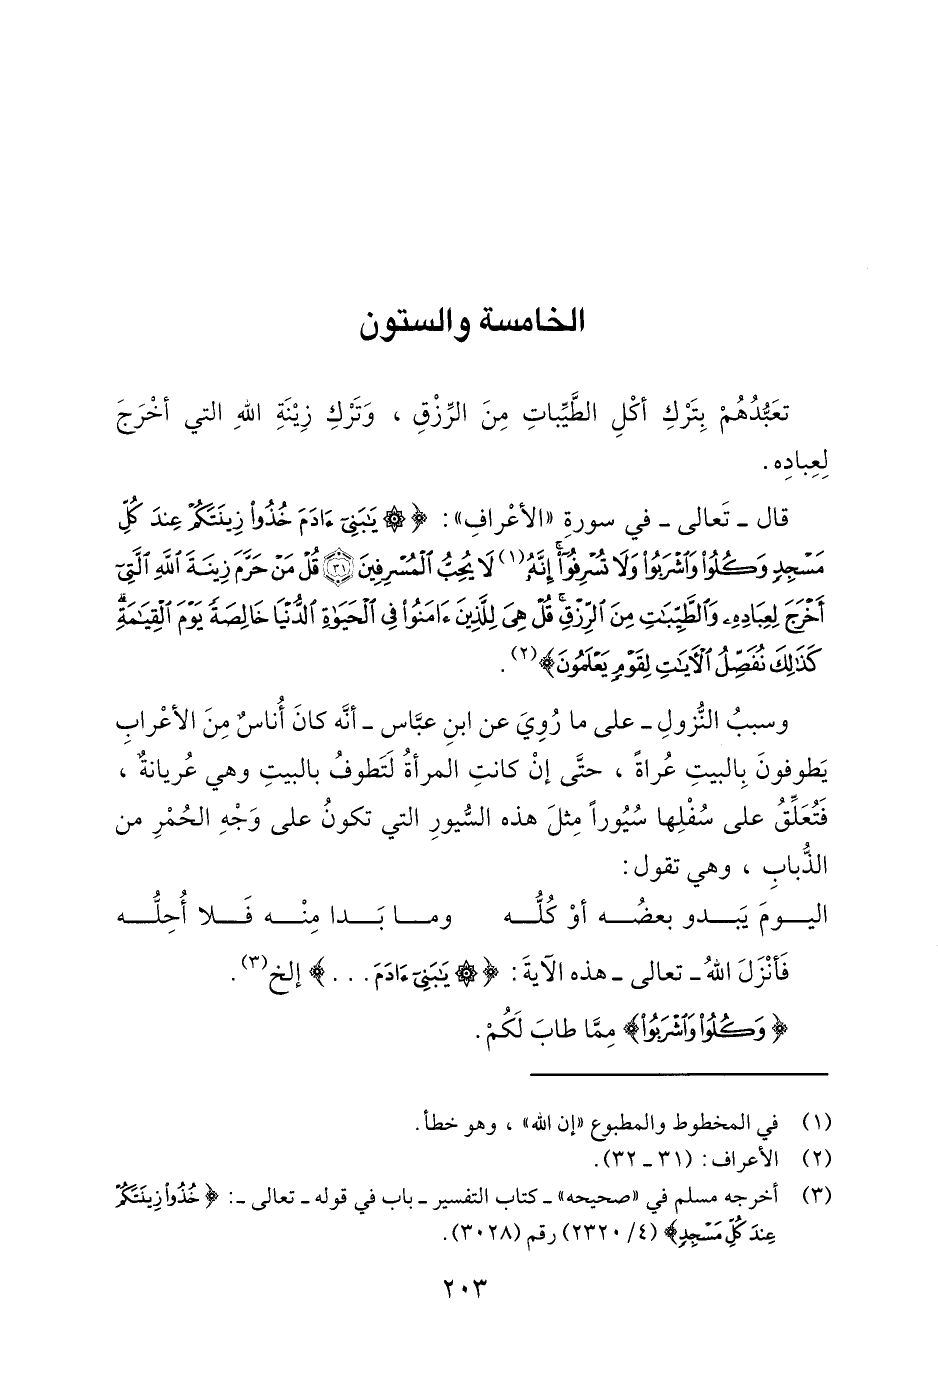 الخامسة والستون
تعَبُّدُهُمْ بِتَرْكِ أكْلِ الطَّيِّباتِ مِنَ الرِّزْقِ ، وَتَرْكِ زِيْنَةِ اللهِ التي أخْرَجَ
لِعِبادِه .
قال ـ تَعالى ـ في سورةِ «الأعْرافِ»: ﴿ ۞ يَٰبَنِىٓ ءَادَمَ خُذُوا۟ زِينَتَكُمْ عِندَ كُلِّ
مَسْجِدٍ وَكُلُوا۟ وَٱشْرَبُوا۟ وَلَا تُسْرِفُوٓا۟ۚ إِنَّهُۥ(١) لَا يُحِبُّ ٱلْمُسْرِفِينَ ۝٣١ قُلْ مَنْ حَرَّمَ زِينَةَ ٱللَّهِ ٱلَّتِىٓ
أَخْرَجَ لِعِبَادِهِۦ وَٱلطَّيِّبَٰتِ مِنَ ٱلرِّزْقِۚ قُلْ هِىَ لِلَّذِينَ ءَامَنُوا۟ فِى ٱلْحَيَوٰةِ ٱلدُّنْيَا خَالِصَةً يَوْمَ ٱلْقِيَٰمَةِۗ
كَذَٰلِكَ نُفَصِّلُ ٱلْءَايَٰتِ لِقَوْمٍ يَعْلَمُونَ﴾(٢) .
وسببُ النُّزولِ ـ على ما رُوِيَ عن ابنِ عبَّاس ـ أنَّه كانَ أُناسٌ مِنَ الأعْرابِ
يَطوفونَ بِالبيتِ عُراةً ، حتَّى إنْ كانتِ المرأةُ لَتَطوفُ بالبيتِ وهي عُريانةٌ ،
فَتُعَلِّقُ على سُفْلِها سُيُوراً مِثلَ هذه السُّيورِ التي تكونُ على وَجْهِ الحُمْرِ من
الذُّبابِ ، وهي تقول :
اليـومَ يَبـدو بعضُـه أوْ كُلُّـه ومـا بَـدا مِنْـه فَـلا أُحِلُّـه
فَأنْزَلَ اللهُ ـ تعالى ـ هذه الآيةَ : ﴿ ۞ يَٰبَنِىٓ ءَادَمَ . . . ﴾ إلخ(٣).
﴿ وَكُلُوا۟ وَٱشْرَبُوا۟﴾ مِمَّا طابَ لَكُمْ .
(١) في المخطوط والمطبوع «إن الله» ، وهو خطأ.
(٢) الأعراف : (٣١ ـ ٣٢).
(٣) أخرجه مسلم في «صحيحه» ـ كتاب التفسير ـ باب في قوله ـ تعالى ـ: ﴿ خُذُوا۟ زِينَتَكُمْ
عِندَ كُلِّ مَسْجِدٍ﴾ (٤/ ٢٣٢٠) رقم (٣٠٢٨).
٢٠٣